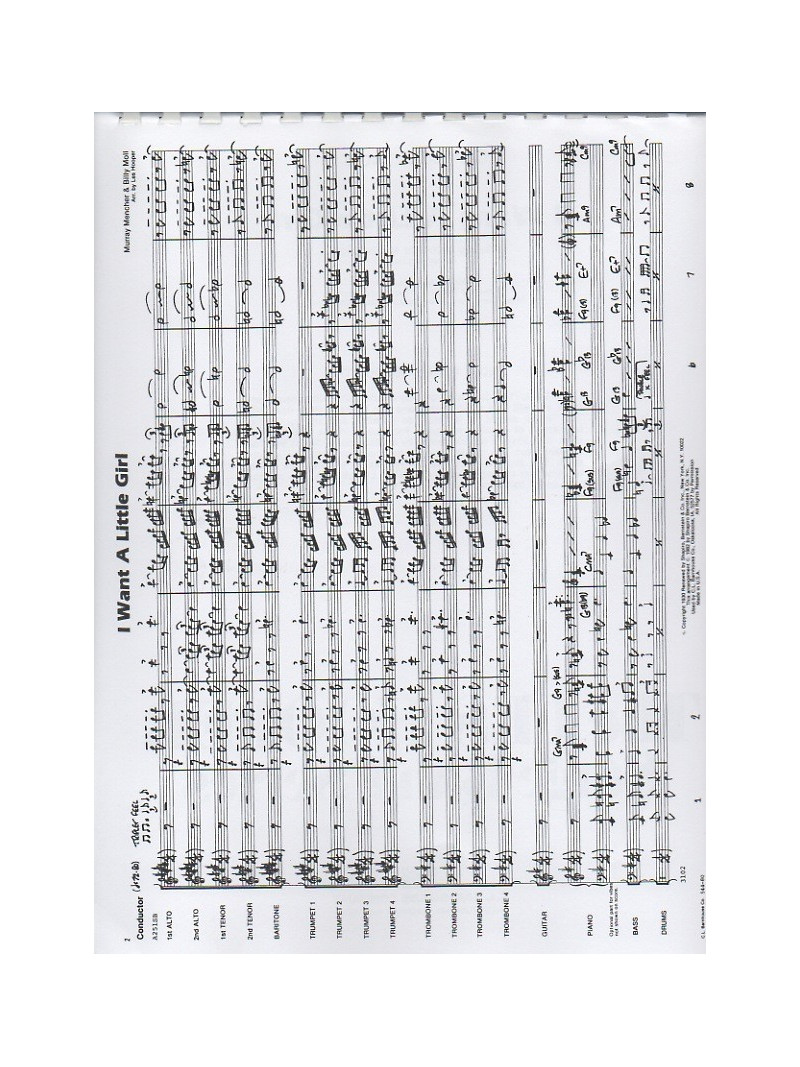 2
I Want A Little Girl
Murray Mencher & Billy Moll
Arr. by Les Hooper
Conductor
TRIPLET FEEL
A2515B
1st ALTO
2nd ALTO
1st TENOR
2nd TENOR
BARITONE
TRUMPET 1
TRUMPET 2
TRUMPET 3
TRUMPET 4
TROMBONE 1
TROMBONE 2
TROMBONE 3
TROMBONE 4
GUITAR
PIANO
Optional part for vibes
not shown on score.
BASS
DRUMS
3102
1 2 6 7 8
© Copyright 1930 Renewed by Shapiro, Bernstein & Co. Inc. New York, N.Y. 10022
This arrangement © 1982 by Shapiro Bernstein & Co. Inc.
Used by C.L. Barnhouse Co., Oskaloosa, IA. 52577 by Permission
Made in U.S.A. All Rights Reserved
C.L. Barnhouse Co.